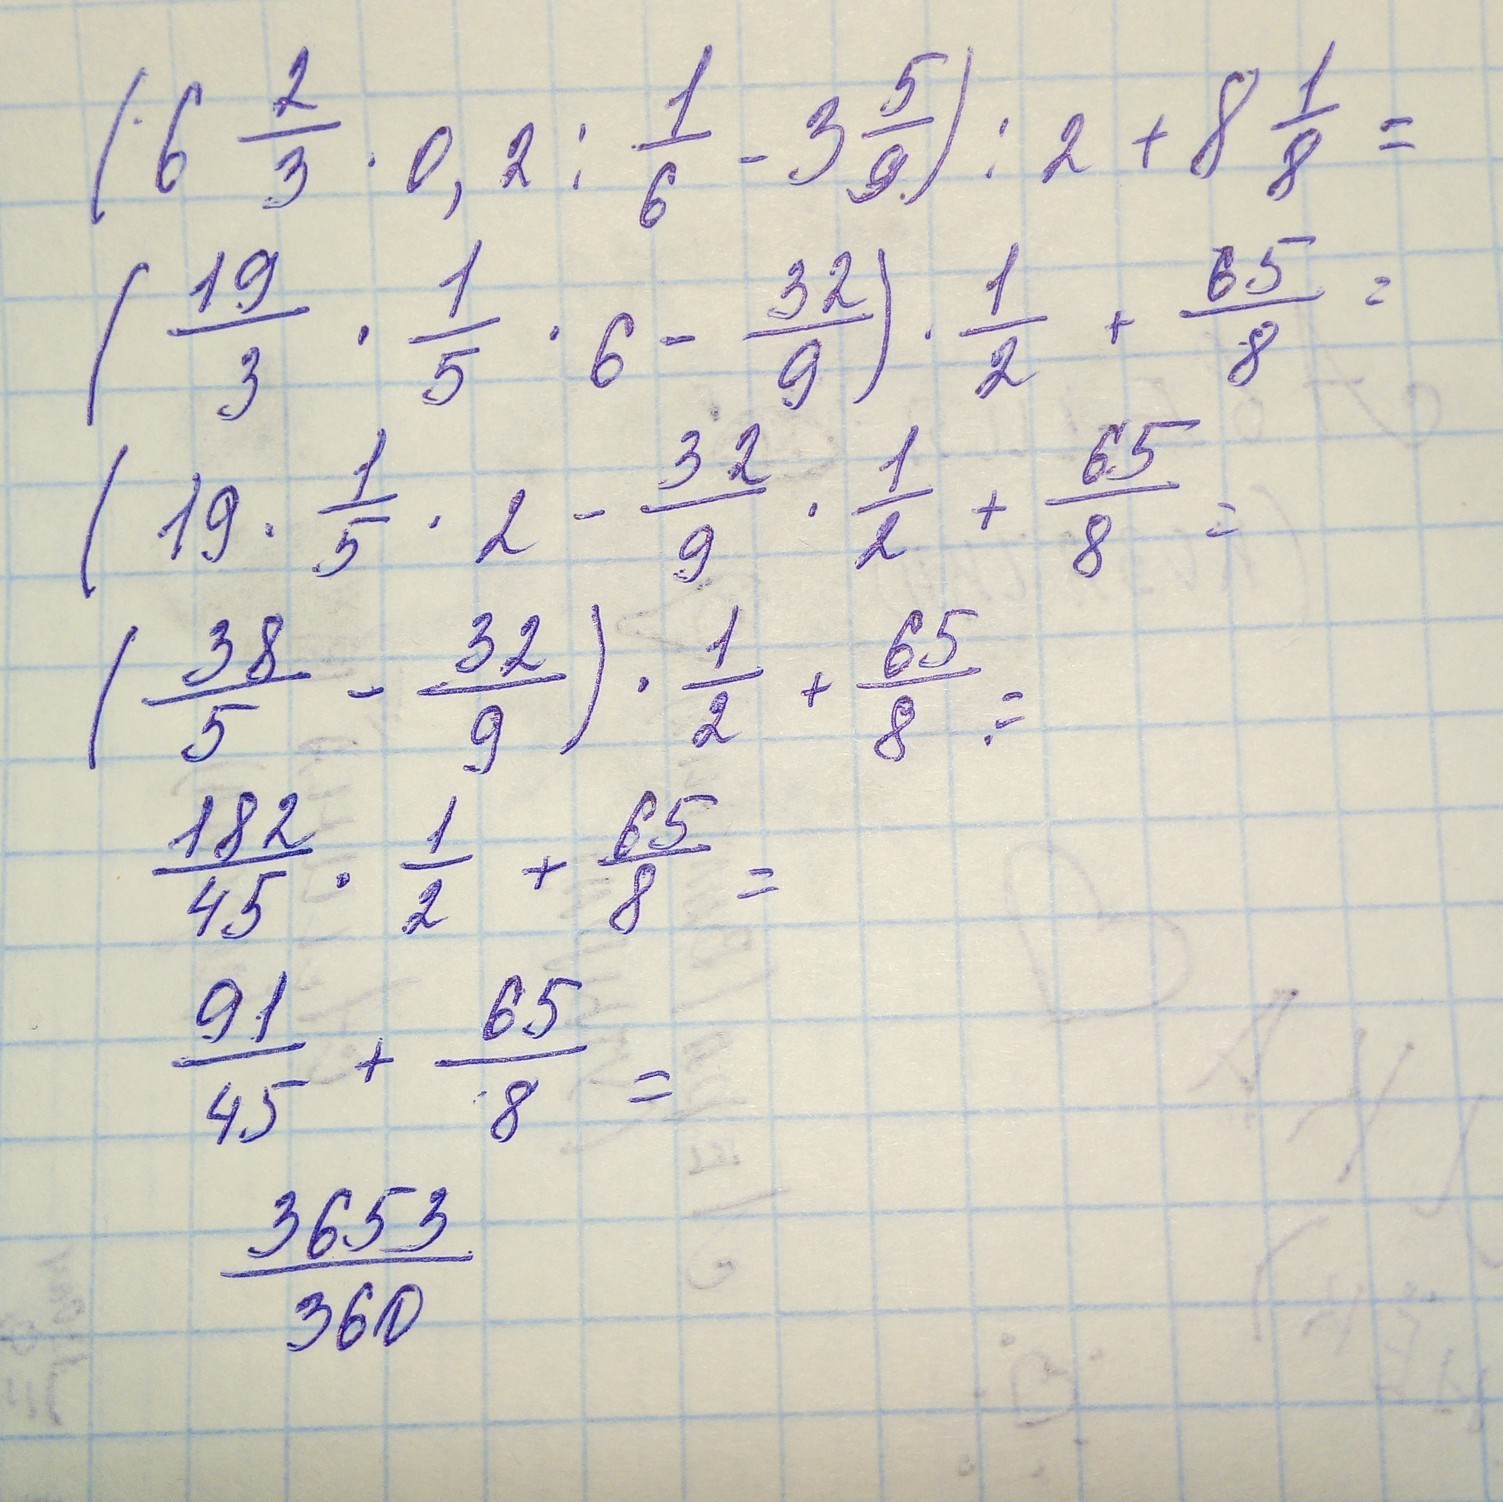 (6 2/3 · 0,2 : 1/6 - 3 5/9) : 2 + 8 1/8 =
(19/3 · 1/5 · 6 - 32/9) · 1/2 + 65/8 =
(19 · 1/5 · 2 - 32/9 · 1/2 + 65/8 =
(38/5 - 32/9) · 1/2 + 65/8 =
182/45 · 1/2 + 65/8 =
91/45 + 65/8 =
3653/360